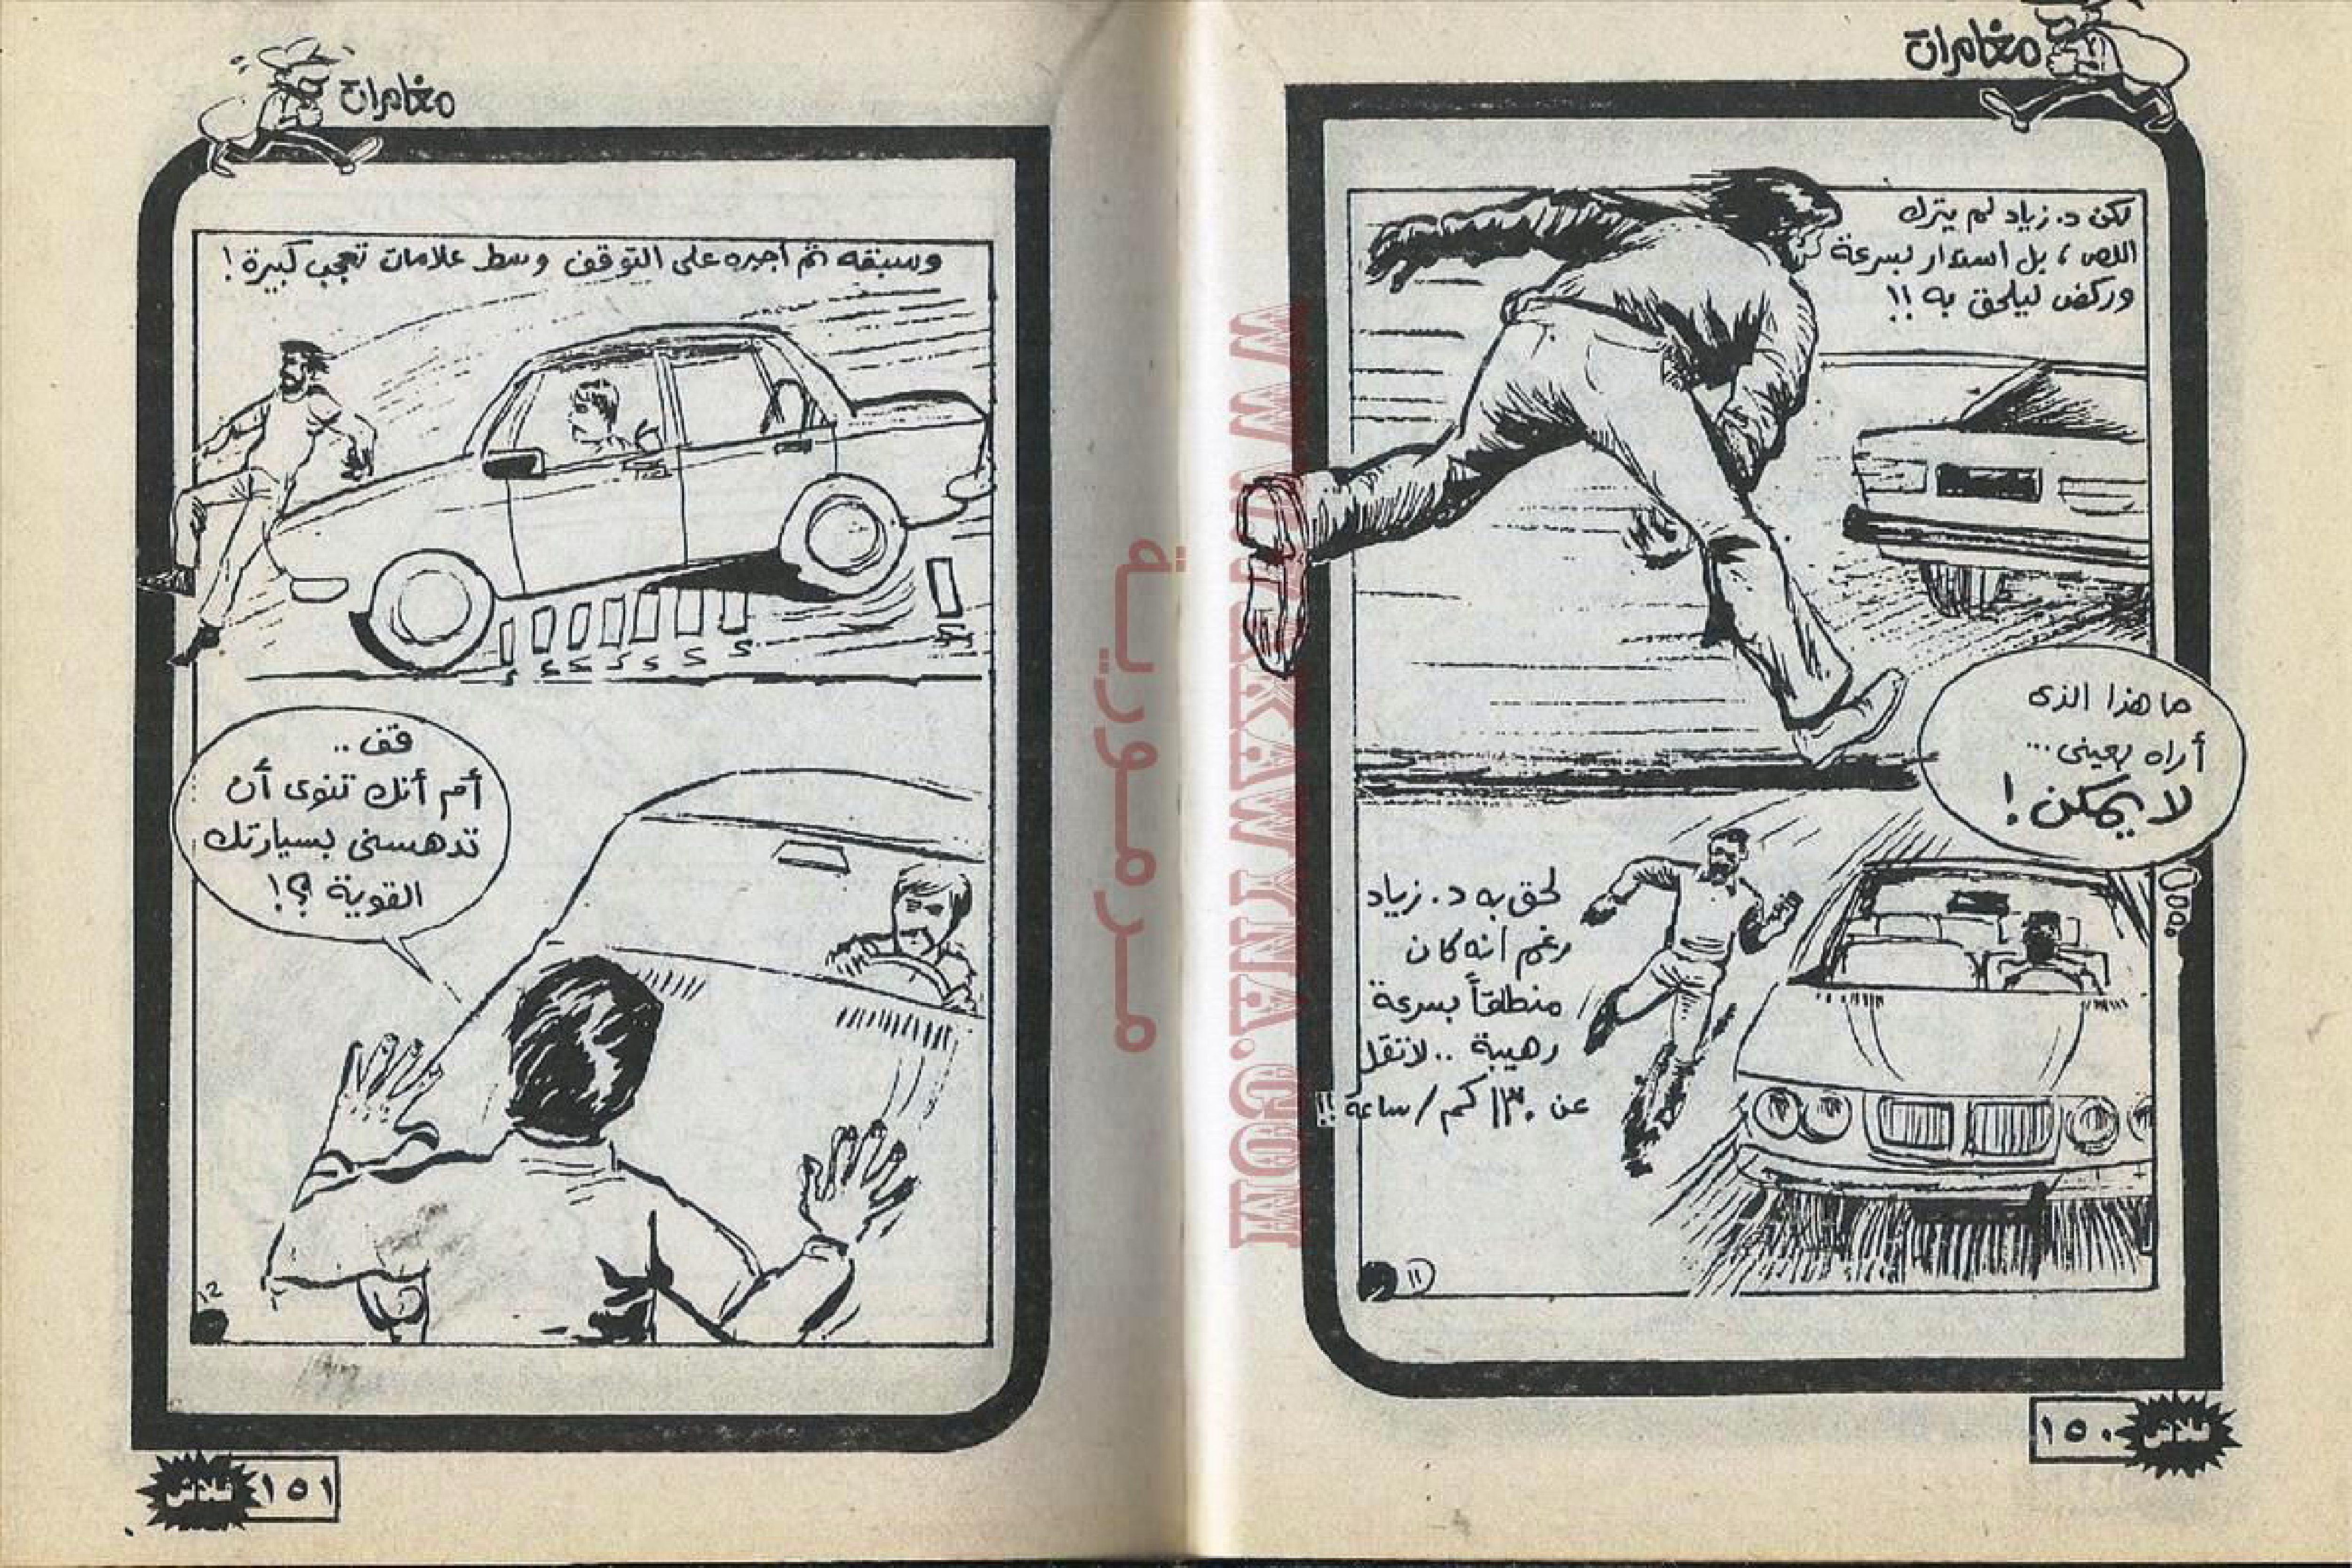 مغامرات
لكن د. زياد لم يترك
اللص ، بل استدار بسرعة
وركض ليلحق به !!
ما هذا الذى
أراه بعينى ...
لا يمكن !
لحق به د. زياد
رغم انه كان
منطلقاً بسرعة
رهيبة .. لا تقل
عن ١٣٠ كم / ساعة !!
١١
فلاش
١٥٠
WWW.ARAKAWKNEA.COM
مرمورية
مغامرات
وسبقه ثم أجبره على التوقف وسط علامات تعجب كبيرة !
قف ..
أم أنك تنوى أن
تدهسنى بسيارتك
القوية ؟!
12
١٥١
فلاش